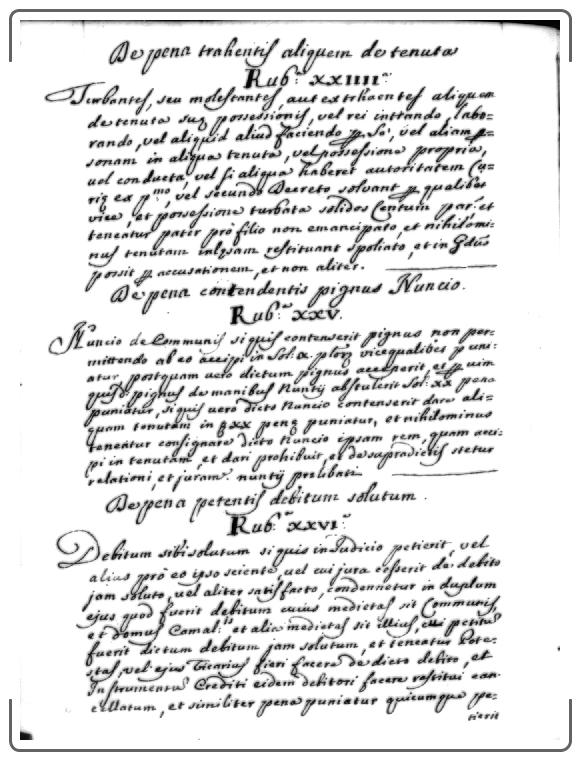 De pena trahentis aliquem de tenuta
Rub:ª XXIIII.ª
Turbantes, seu molestantes, aut extrhaentes aliquem
de tenuta suę possessionis, vel rei intrando, labo=
rando, vel aliquid aliud faciendo p Se', vel aliam p=
sonam in aliqua tenuta, vel possessione propria,
vel conducta, vel si aliqua haberet autoritatem Cu=
rię ex p.mo, vel secundo Decreto solvant p qualibet
vice, et possessione turbata solidos Centum par: et
teneatur pater prò filio non emancipato, et nihilomi=
nus tenutam infsam restituant spoliato, et in
possit p accusationem, et non aliter.
De pena contendentis pignus Nuncio.
Rub:ª XXV.
Nuncio de Communis si quis contenserit pignus non per=
mittendo ab eo accipi in Sol: X plorz vice qualibet puni=
atur, postquam vero dictum pignus acceperit, et p vim
quis d: pignus de manibus Nuntij abstulerit Sol: XX pena
puniatur, si quis vero dicto Nuncio contenserit dare ali=
quam tenutam in XX penę puniatur, et nihilominus
teneatur consignare dicto Nuncio ipsam rem, quam acci=
pi in tenutam, et dari prohibuit, et de supradictis stetur
relationi, et juram. nuntij prelibati
De pena petentis debitum solutum.
Rub:ª XXVI.ª
Debitum sibi solutum si quis in Judicio petierit, vel
alius prò eo ipso sciente, vel cui jura cesserit de debito
jam soluto, vel aliter satisfacto, condennetur in duplum
ejus quod fuerit debitum cuius medietas sit Communis,
et domus Camal:is et alia medietas sit illius, cui petitũ
fuerit dictum debitum jam solutum, et teneatur Pote=
stas, vel ejus Vicarius fieri facere de dicto debito, et
Instrumentũ Crediti eidem debitori facere restitui can=
cellatum, et similiter pena puniatur quicumque pe=
tierit